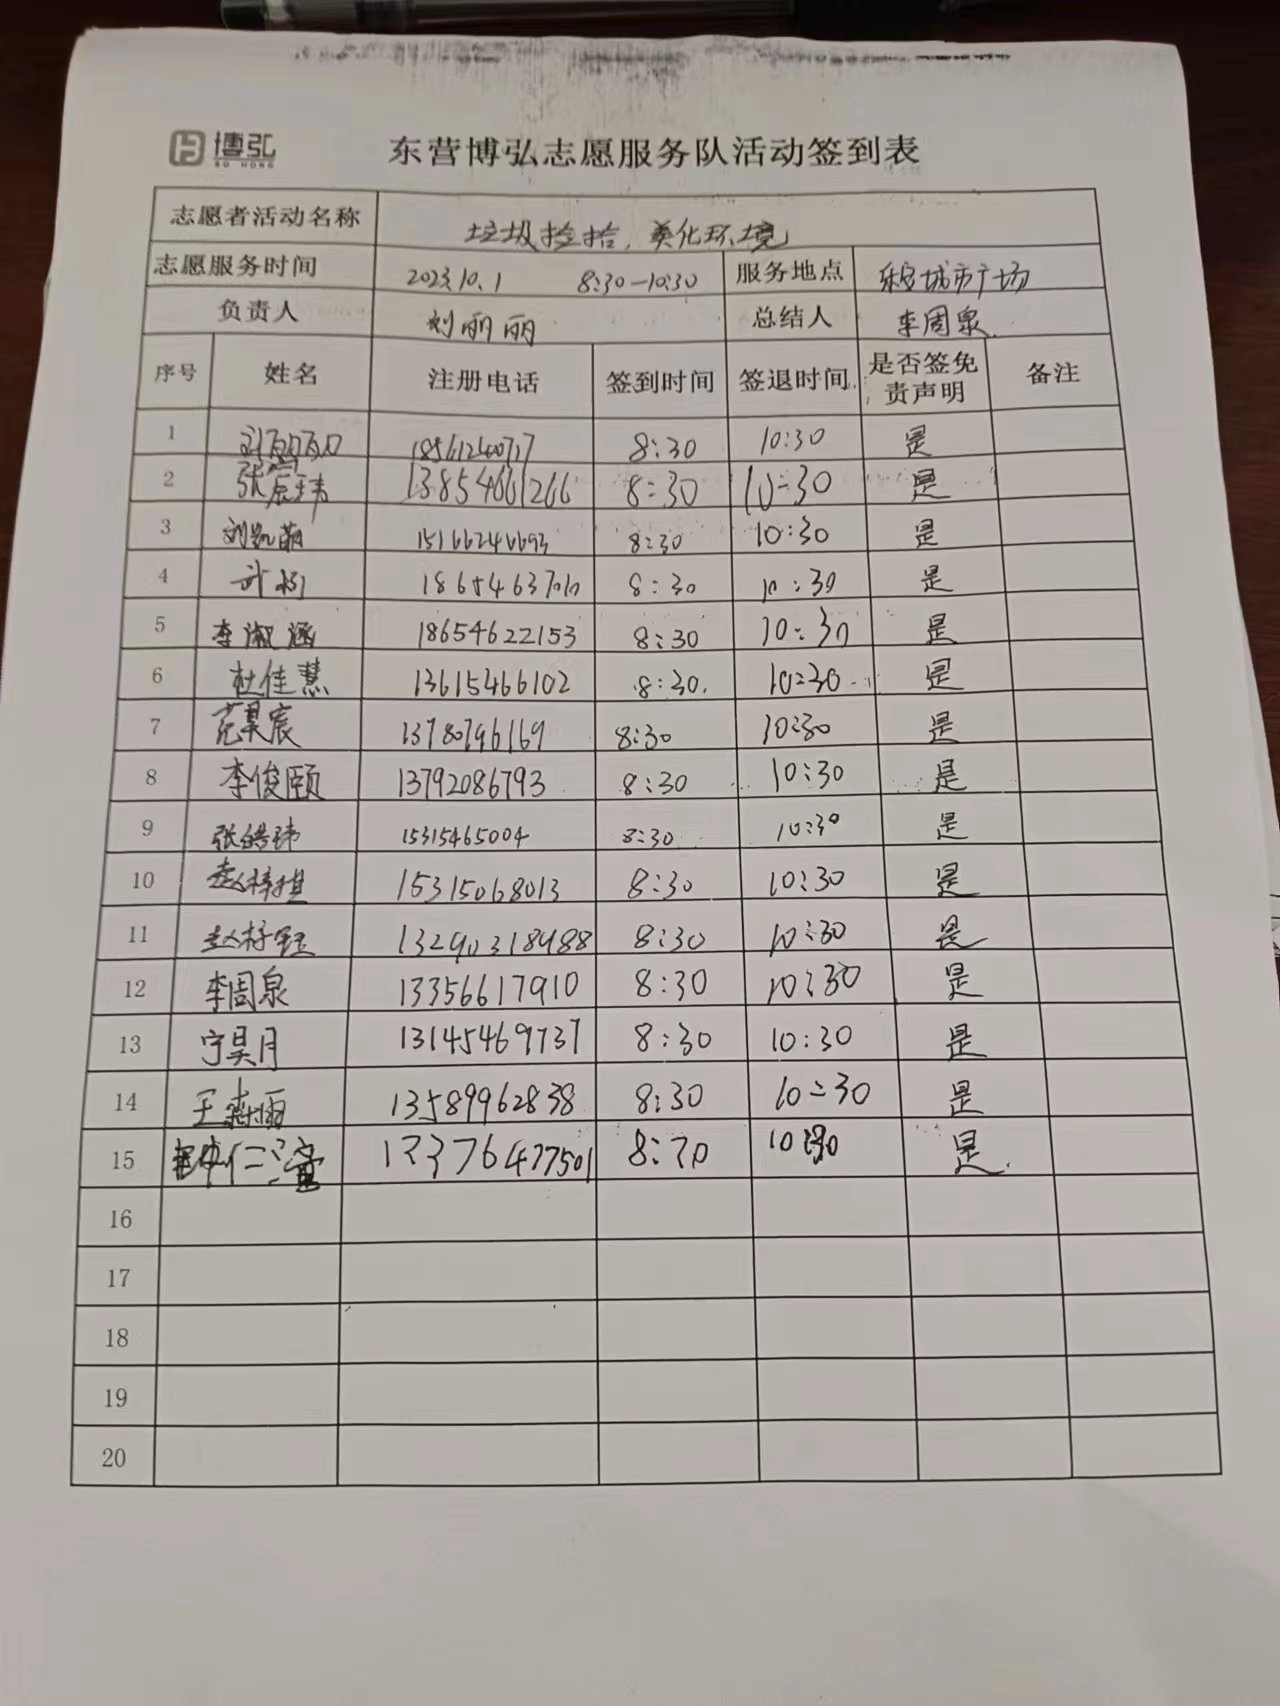 博弘
BO HONG
东营博弘志愿服务队活动签到表
志愿者活动名称 垃圾捡拾，美化环境
志愿服务时间 2023.10.1 8:30—10:30 服务地点 城市广场
负责人 刘丽丽 总结人 李周泉
序号 姓名 注册电话 签到时间 签退时间 是否签免责声明 备注
1 刘丽丽 8:30 10:30 是
2 张宸玮 13854661266 8:30 10:30 是
3 刘凯萌 8:30 10:30 是
4 8:30 10:30 是
5 李淑涵 18654622153 8:30 10:30 是
6 杜佳慧 13615466102 8:30 10:30 是
7 范昊宸 13780796169 8:30 10:30 是
8 李俊颐 13792086793 8:30 10:30 是
9 张皓玮 15315465004 8:30 10:30 是
10 赵梓棋 15315068013 8:30 10:30 是
11 13290318988 8:30 10:30 是
12 李周泉 13356617910 8:30 10:30 是
13 宁昊月 13145469737 8:30 10:30 是
14 王 雨 13589962838 8:30 10:30 是
15 8:30 10:30 是
16
17
18
19
20